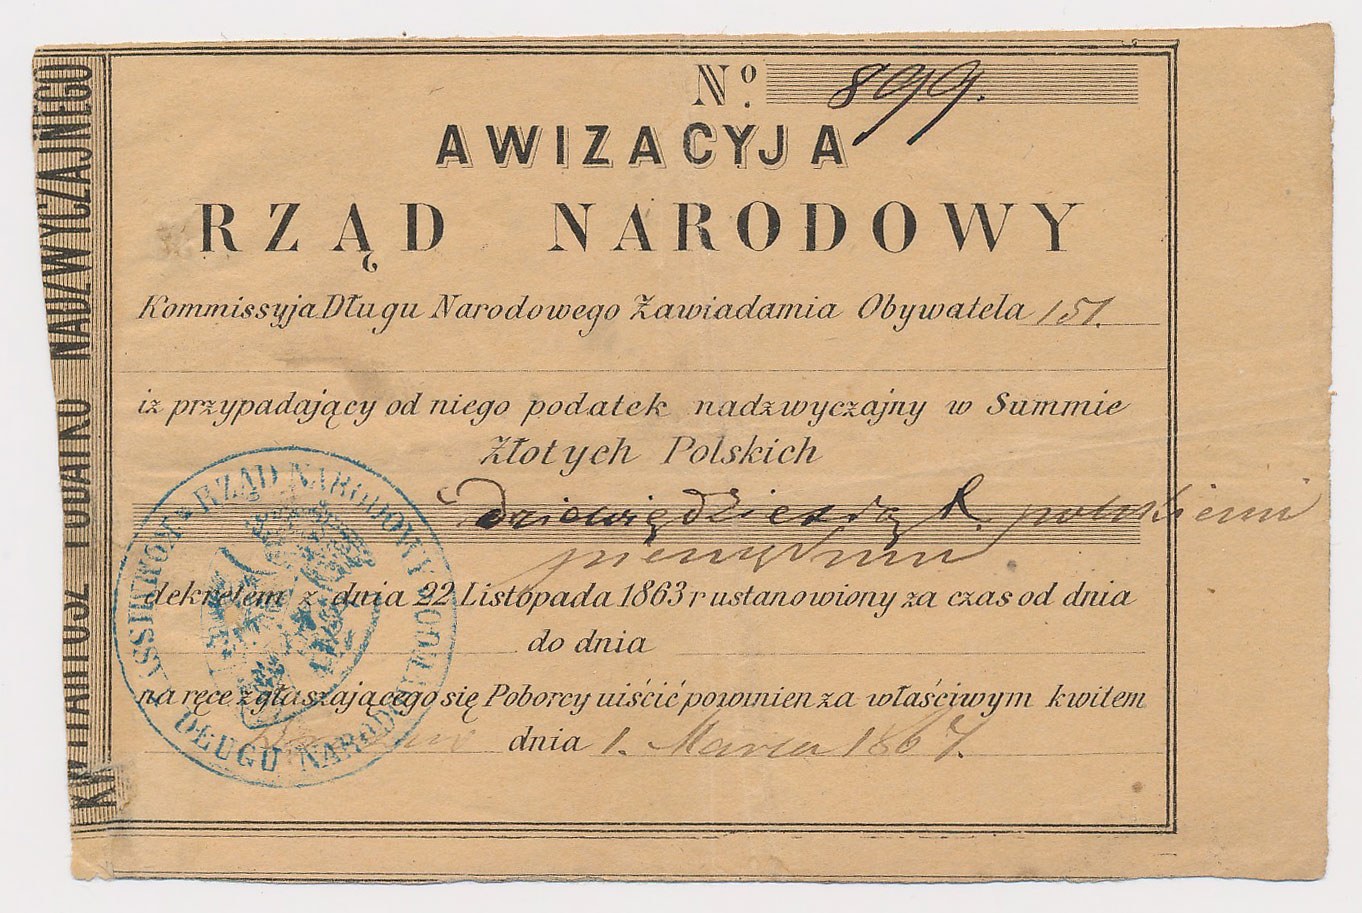 KWITARIUSZ PODATKU NADZWYCZAJNEGO
Nº. 899.
AWIZACYJA
RZĄD NARODOWY
Kommissyja Długu Narodowego Zawiadamia Obywatela 151.
iz przypadający od niego podatek nadzwyczajny w Summie
Złotych Polskich
dziewiędziesią
dekretem z dnia 22 Listopada 1863 r ustanowiony za czas od dnia
do dnia
na ręce zgłaszającego się Poborcy uiścić powinien za właściwym kwitem
dnia 1. Marca 1864.
RZĄD NARODOWY
DŁUGU NARODO